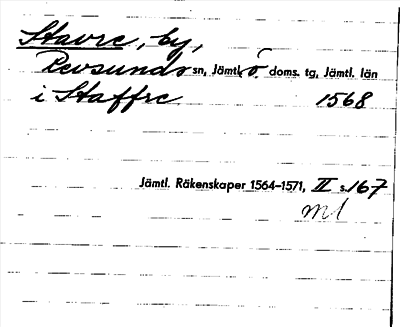 Stavre, by,
Revsunds sn, Jämtl. ö. doms. tg, Jämtl. län
i Staffre 1568
Jämtl. Räkenskaper 1564–1571, II s. 167
ml